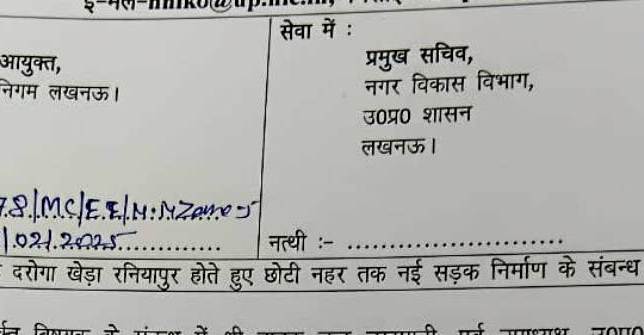 ई-मेल-nniko@up.nic.in,
सेवा में :
आयुक्त,
निगम लखनऊ।
प्रमुख सचिव,
नगर विकास विभाग,
उ0प्र0 शासन
लखनऊ।
8/MC/E.E/N.N Zone-5
.02.2025...............
नत्थी :- ..........................
दरोगा खेड़ा रनियापुर होते हुए छोटी नहर तक नई सड़क निर्माण के संबन्ध